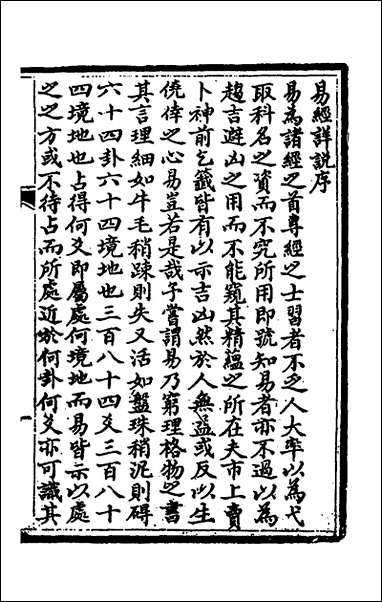 易經詳說序
易為諸經之首尊經之士習者不乏人大率以為弋
取科名之資而不究所用即號知易者亦不過以為
趨吉避凶之用而不能窺其精蘊之所在夫市上賣
卜神前乞籤皆有以示吉凶然於人無益或反以生
僥倖之心易豈若是哉予嘗謂易乃窮理格物之書
其言理細如牛毛稍疎則失又活如盤珠稍泥則碍
六十四卦六十四境地也三百八十四爻三百八十
四境地也占得何爻即屬處何境地而易皆示以處
之之方或不待占而所處近於何卦何爻亦可識其